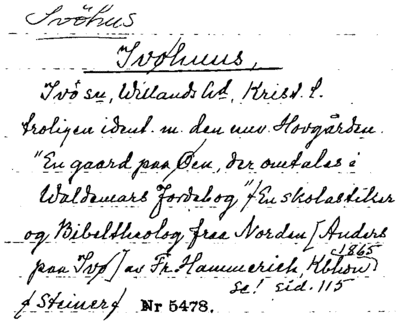 Ivöhus
Ivøhuus,
Ivö sn, Willands hd, Krist. l.
troligen ident. m. den nuv. Hovgården.
"En gaard paa Øen, der omtales i
Waldemars Jordebog" /En skolastiker
og Bibeltheolog fraa Norden [Anders
paa Ivø] av Fr. Hammerich, Kbhvn 1865)
se! sid. 115
/Steiner/ Nr 5478.